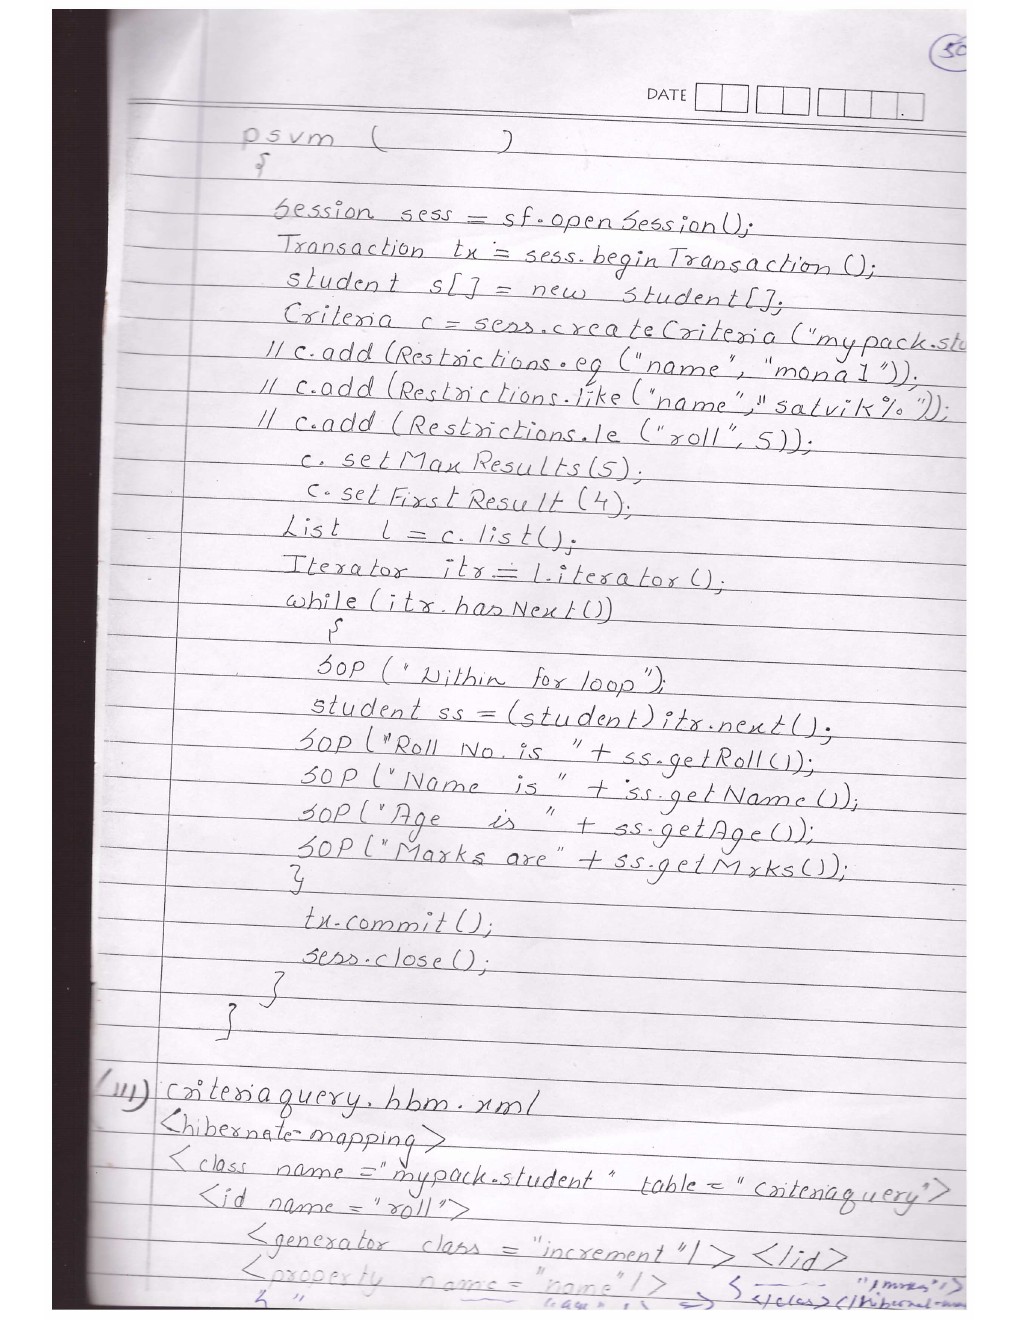 50
DATE
psvm ( )
{
Session sess = sf.openSession();
Transaction tx = sess.beginTransaction();
student s[] = new student[];
Criteria c = sess.createCriteria("mypack.stu
// c.add (Restrictions.eq ("name", "mona1"));
// c.add (Restrictions.like ("name", "satvik%"));
// c.add (Restrictions.le ("roll", 5));
c. setMaxResults(5);
c. setFirstResult (4);
List l = c. list();
Iterator itr = l.iterator();
while (itr.hasNext())
{
SOP ("Within for loop");
student ss = (student)itr.next();
SOP ("Roll No. is " + ss.getRoll());
SOP ("Name is " + ss.getName());
SOP ("Age is " + ss.getAge());
SOP ("Marks are" + ss.getMrks());
}
tx.commit();
sess.close();
}
}
(III) criteriaquery.hbm.xml
<hibernate-mapping>
<class name ="mypack.student" table = "criteriaquery">
<id name = "roll">
<generator class = "increment"/> </id>
<property name = "name"/>
</class>